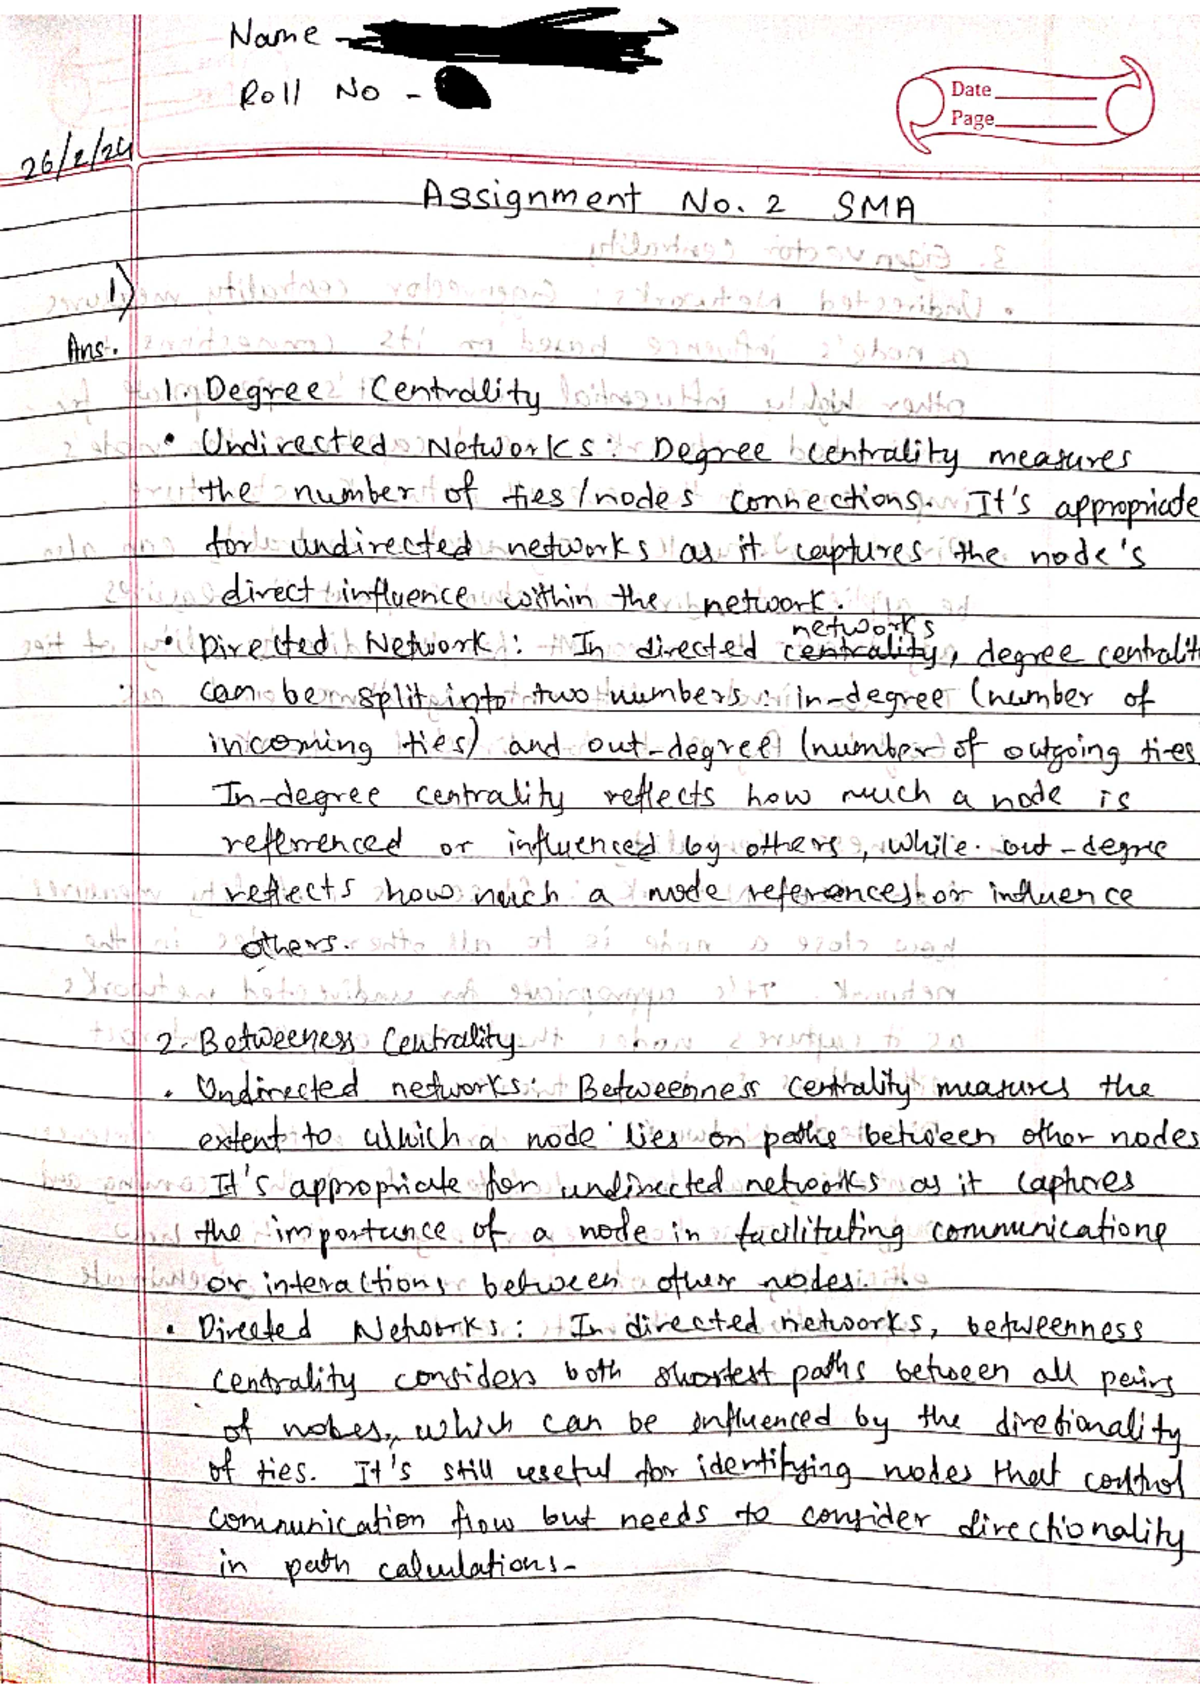 Name -
Roll No -
Date
Page
26/2/24
Assignment No. 2 SMA
1)
Ans.
1. Degree Centrality
• Undirected Networks: Degree centrality measures
the number of ties/nodes connections. It's appropriate
for undirected networks as it captures the node's
direct influence within the network.
networks
• Directed Network: In directed centrality, degree centralit
can be split into two numbers: in-degree (number of
incoming ties) and out-degree (number of outgoing ties
In-degree centrality reflects how much a node is
referrenced or influenced by others, while. out-degree
reflects how much a node references or influence
others.
2. Betweeness Centrality
• Undirected networks: Betweenness centrality measures the
extent to which a node lies on paths between other nodes
It's appropriate for undirected networks as it captures
the importance of a node in facilitating communication
or interactions between other nodes.
• Directed Networks: In directed networks, betweenness
centrality considers both shortest paths between all pairs
of nodes, which can be influenced by the directionality
of ties. It's still useful for identifying nodes that control
communication flow but needs to consider directionality
in path calculations-